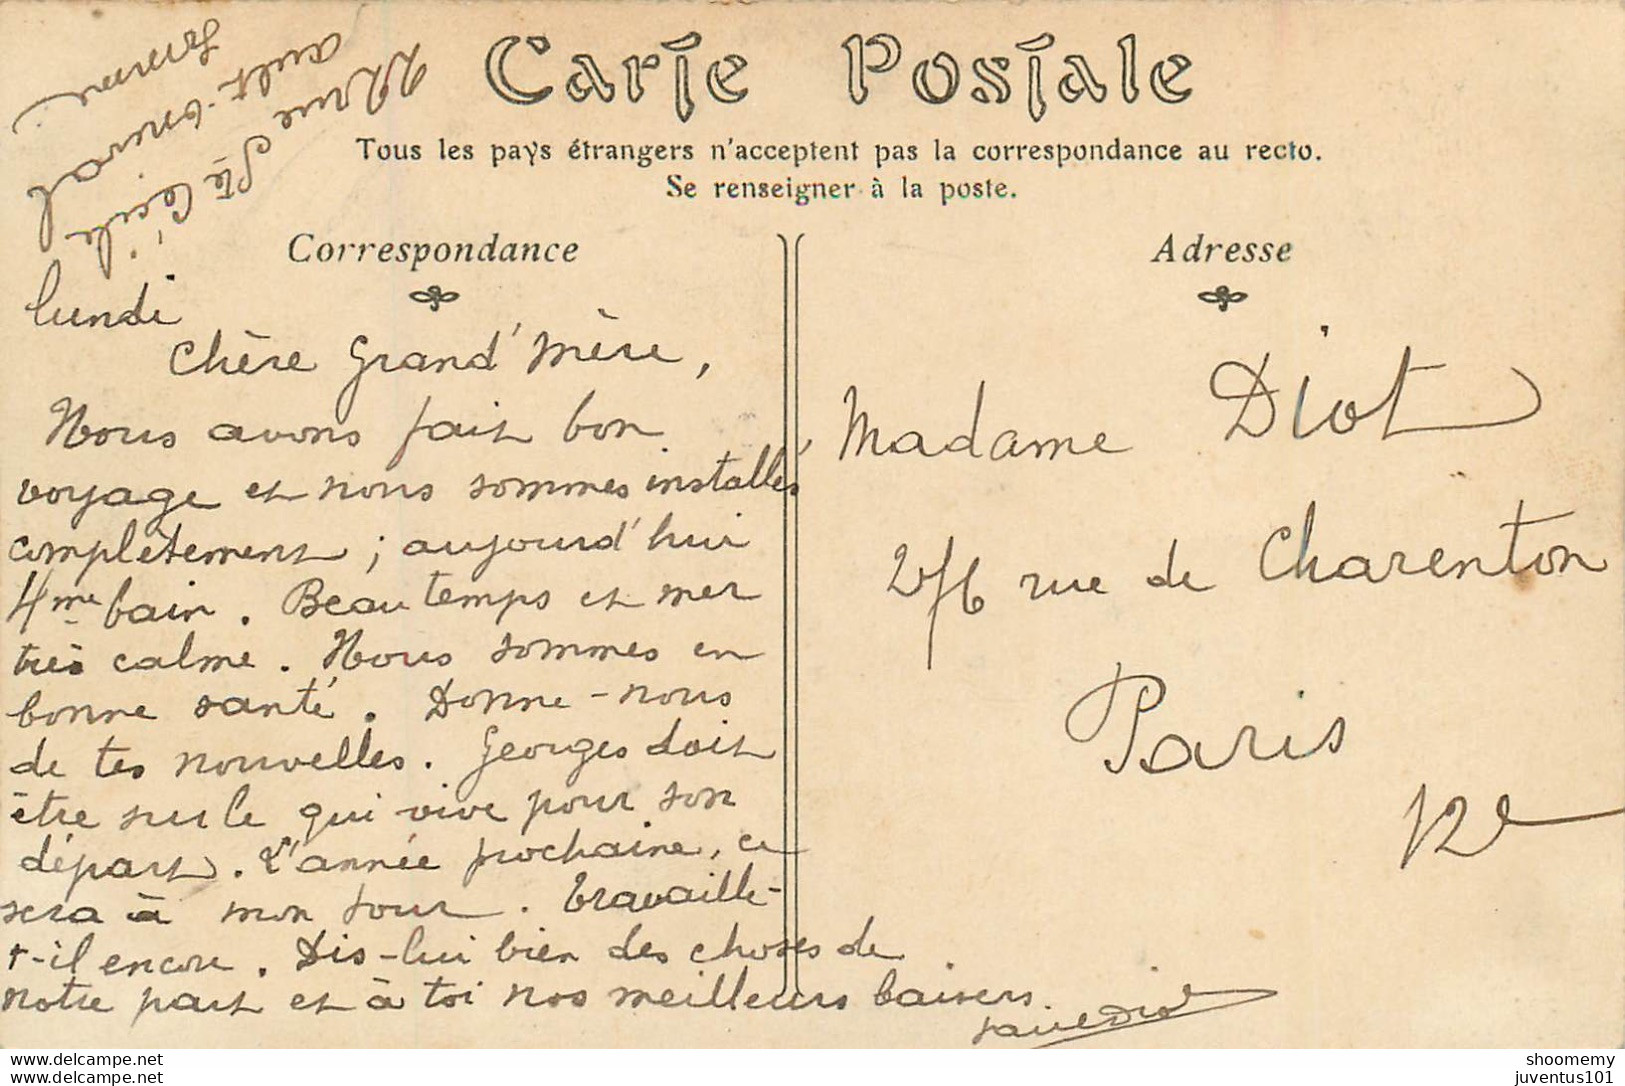 22 rue Ste Cécile
ault-onival
Somme
Carte Postale
Tous les pays étrangers n'acceptent pas la correspondance au recto.
Se renseigner à la poste.
Correspondance
Adresse
lundi
Chère Grand'Mère,
Nous avons fait bon
voyage et nous sommes installés
complètement ; aujourd'hui
4me bain. Beau temps et mer
très calme. Nous sommes en
bonne santé. Donne-nous
de tes nouvelles. Georges doit
être sur le qui vive pour son
départ. L'année prochaine, ce
sera à mon tour. Travaille-
t-il encore. Dis-lui bien des choses de
notre part et à toi nos meilleurs baisers.
Madame Diot
rue de Charenton
Paris
12e
delcampe.net
delcampe.net
shoomemy
juventus101